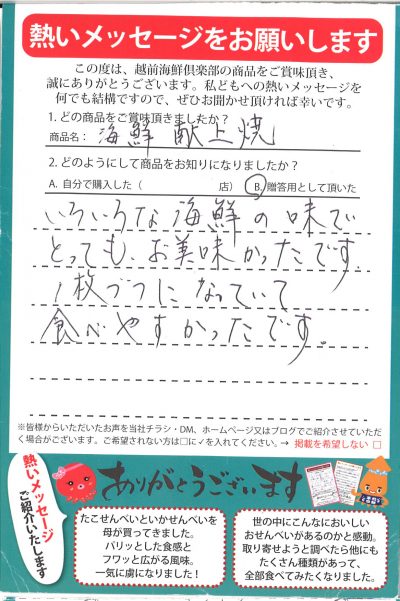 熱いメッセージをお願いします
この度は、越前海鮮倶楽部の商品をご賞味頂き、
誠にありがとうございます。私どもへの熱いメッセージを
何でも結構ですので、ぜひお聞かせ頂ければ幸いです。
1. どの商品をご賞味頂きましたか?
商品名: 海鮮 献上焼
2. どのようにして商品をお知りになりましたか?
A. 自分で購入した( 店) B.贈答用として頂いた
いろいろな海鮮の味で
とっても、お美味かったです。
1枚づつになっていて
食べやすかったです。
※皆様からいただいたお声を当社チラシ・DM、ホームページ又はブログでご紹介させていただ
く場合がございます。ご希望されない方は□に✓を入れてください。→ 掲載を希望しない □
熱いメッセージ
ご紹介いたします
ありがとうございます
たこせんべいといかせんべいを
母が買ってきました。
パリッとした食感と
フワッと広がる風味。
一気に虜になりました!
世の中にこんなにおいしい
おせんべいがあるのかと感動。
取り寄せようと調べたら他にも
たくさん種類があって、
全部食べてみたくなりました。